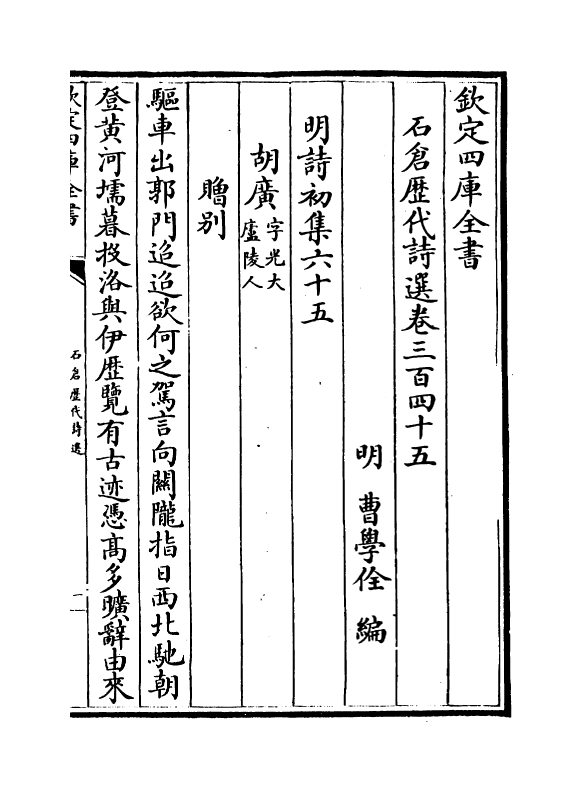 欽定四庫全書
石倉歴代詩選卷三百四十五
明 曹學佺 編
明詩初集六十五
胡廣字光大廬陵人
贈别
驅車出郭門迢迢欲何之駕言向關隴指日西北馳朝
登黄河壖暮投洛與伊歴覽有古迹憑髙多曠辭由來
欽定四庫全書
石倉歴代詩選
一